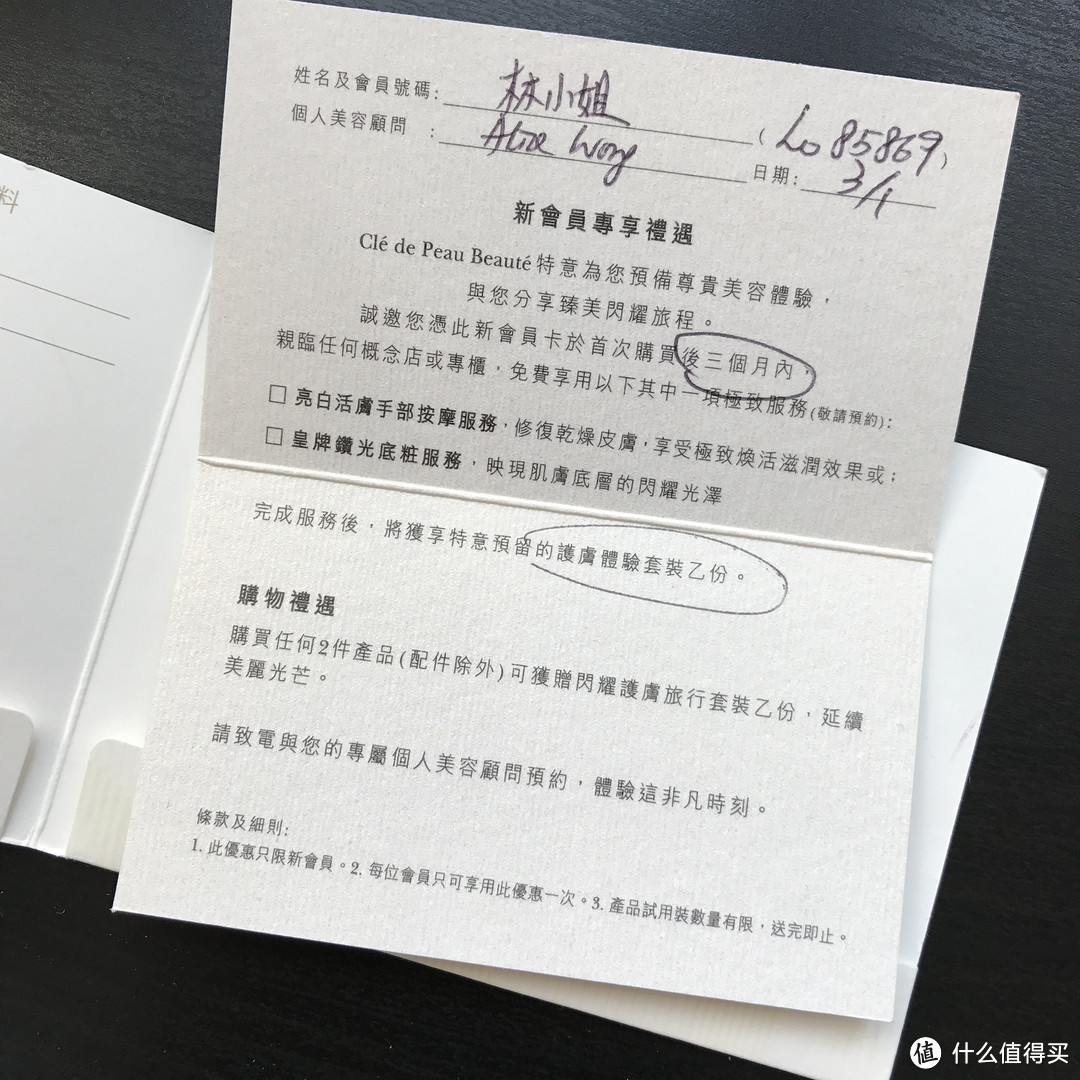 姓名及會員號碼: 林小姐 (Lo 85869)
個人美容顧問 : Alice Wong 日期: 3/1
新會員專享禮遇
Clé de Peau Beauté特意為您預備尊貴美容體驗，
與您分享臻美閃耀旅程。
誠邀您憑此新會員卡於首次購買後三個月內，
親臨任何概念店或專櫃，免費享用以下其中一項極致服務(敬請預約)：
□ 亮白活膚手部按摩服務，修復乾燥皮膚，享受極致煥活滋潤效果或；
□ 皇牌鑽光底粧服務，映現肌膚底層的閃耀光澤
完成服務後，將獲享特意預留的護膚體驗套裝乙份。
購物禮遇
購買任何2件產品(配件除外)可獲贈閃耀護膚旅行套裝乙份，延續
美麗光芒。
請致電與您的專屬個人美容顧問預約，體驗這非凡時刻。
條款及細則:
1. 此優惠只限新會員。2. 每位會員只可享用此優惠一次。3. 產品試用裝數量有限，送完即止。
值 什么值得买